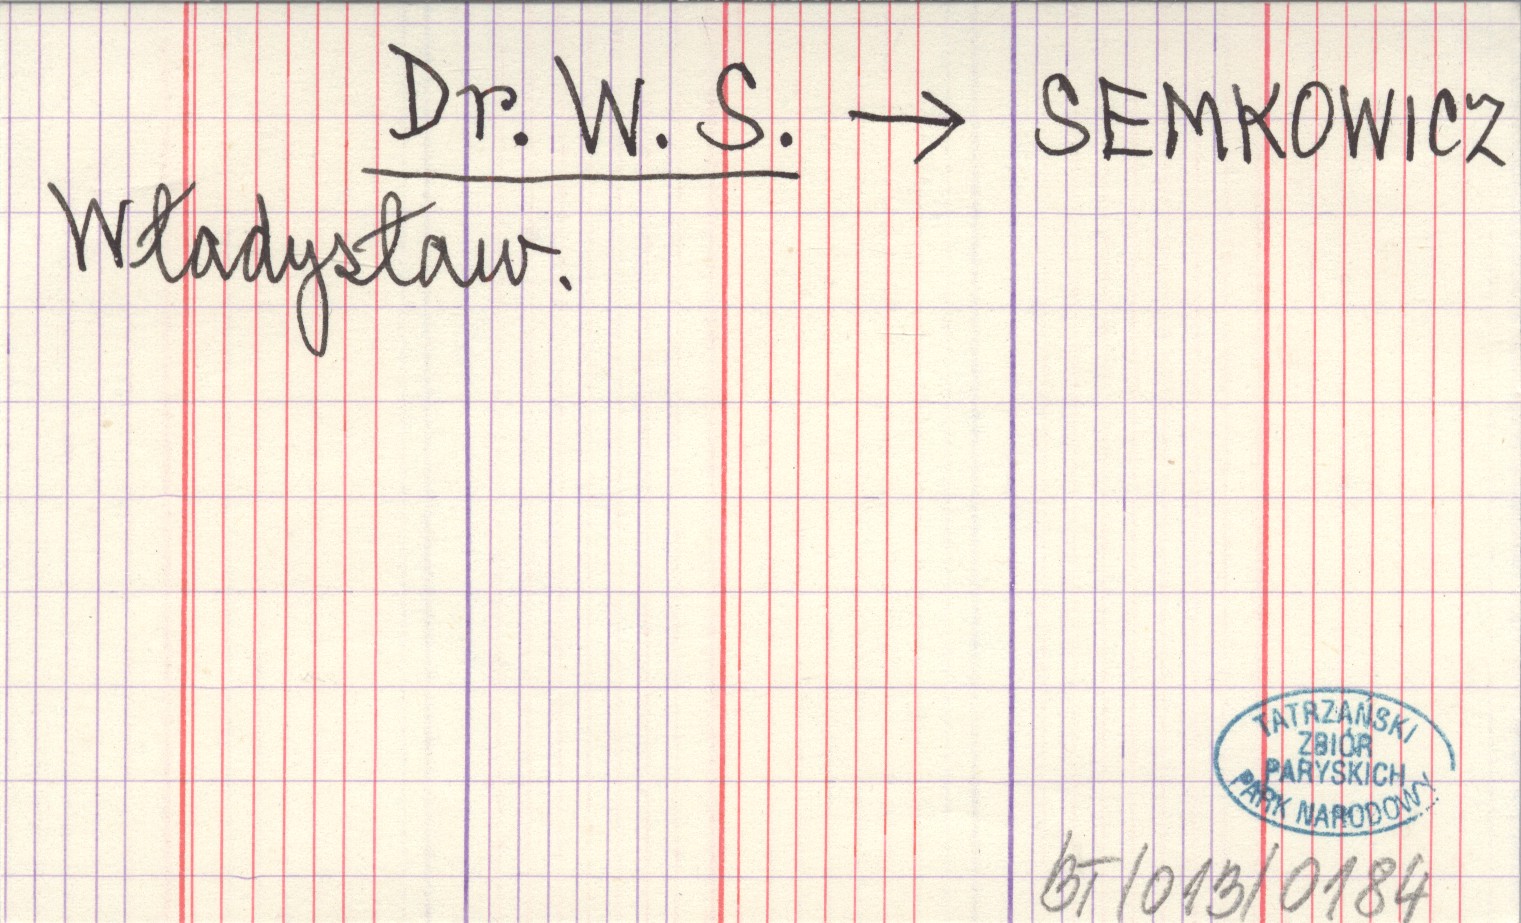 Dr. W. S. → SEMKOWICZ
Władysław.
TATRZAŃSKI
ZBIÓR
PARYSKICH
PARK NARODOWY
BT/013/0184